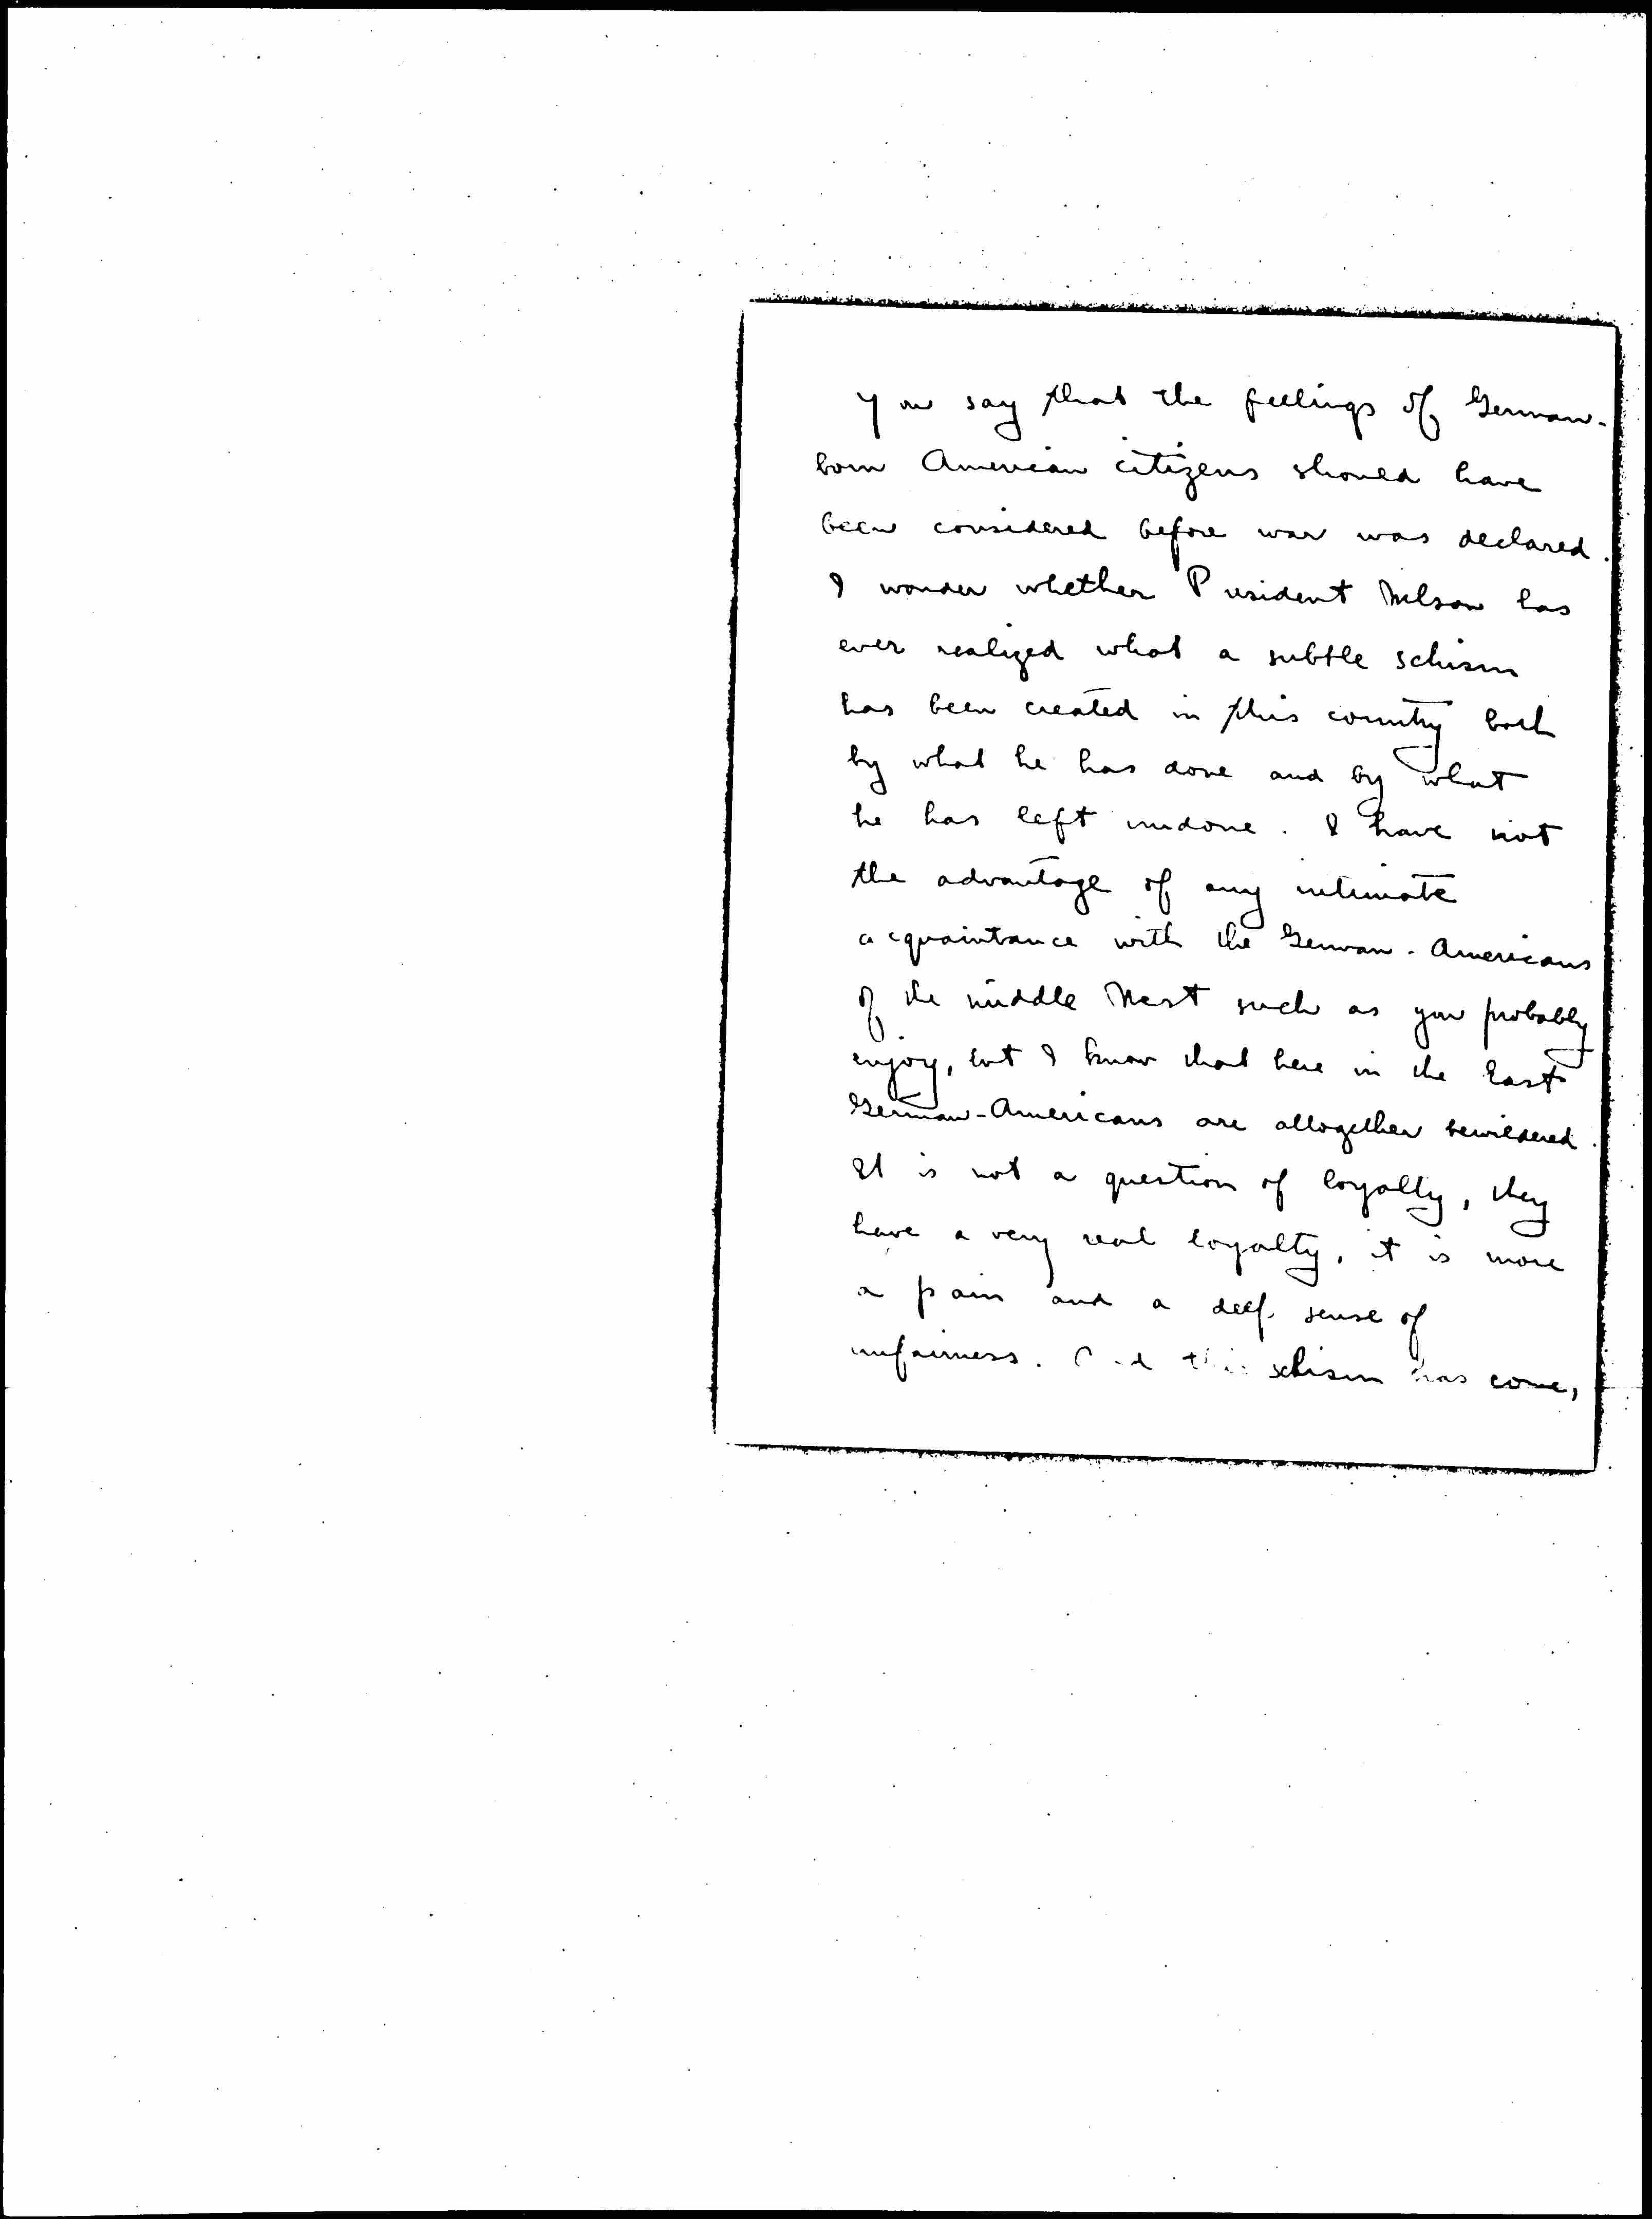 You say that the feelings of German-
born American citizens should have
been considered before war was declared.
I wonder whether President Wilson has
ever realized what a subtle schism
has been created in this country both
by what he has done and by what
he has left undone. I have not
the advantage of any intimate
acquaintance with the German-Americans
of the middle West such as you probably
enjoy, but I know that here in the East
German-Americans are altogether bewildered.
It is not a question of loyalty, they
have a very real loyalty, it is more
a pain and a deep sense of
unfairness. And this schism has come,